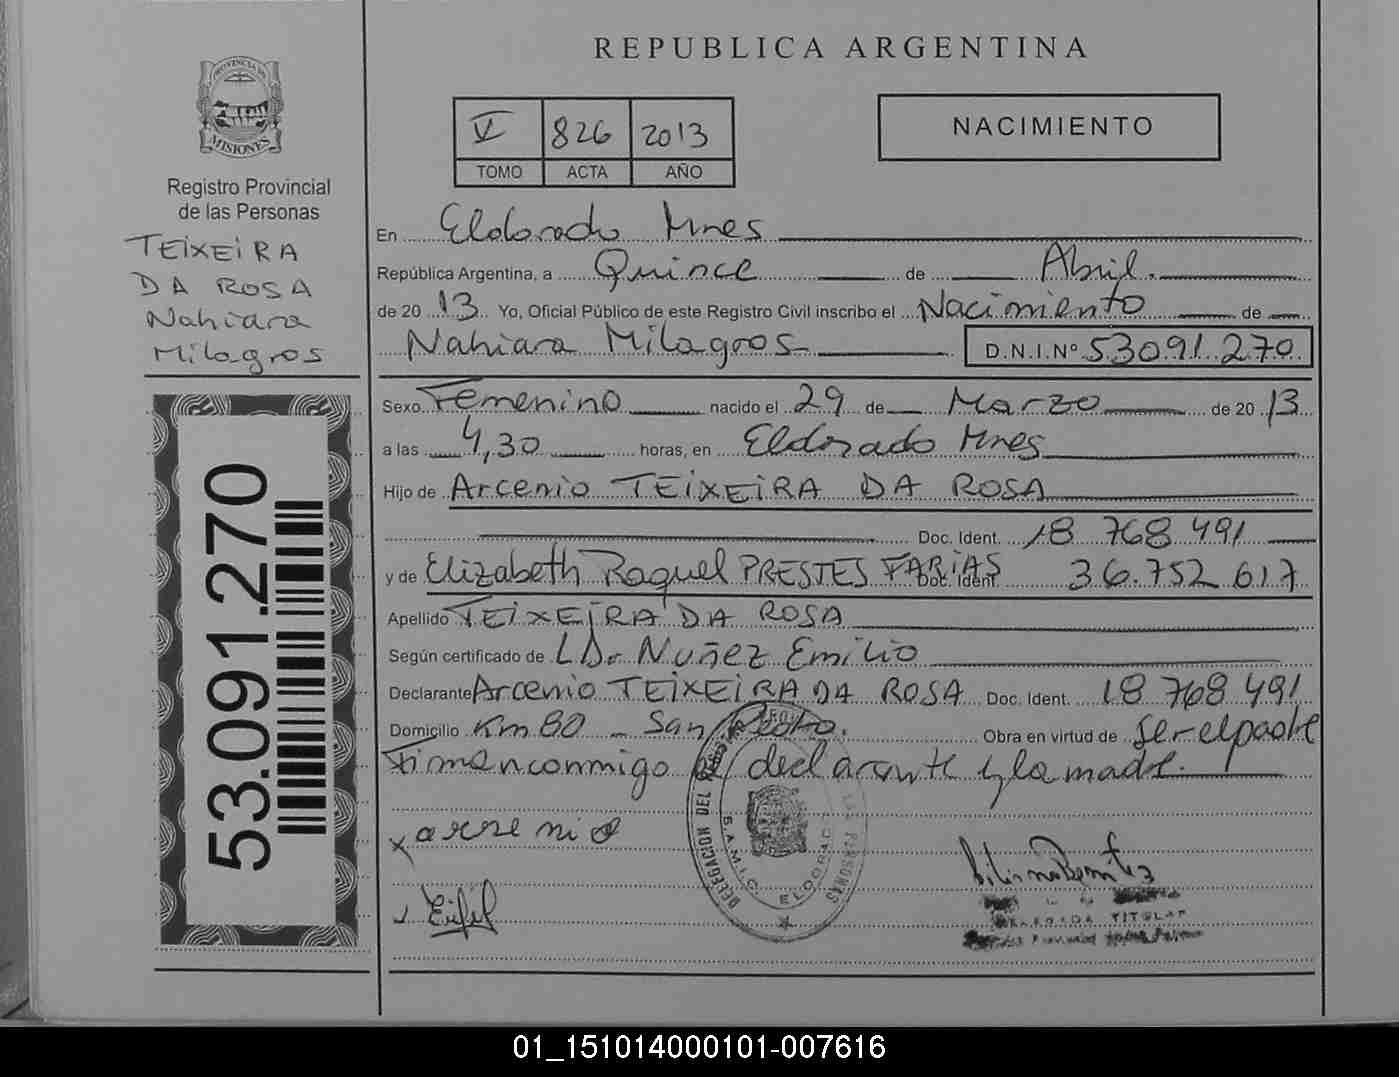 REPUBLICA ARGENTINA
PROVINCIA DE
MISIONES
Registro Provincial
de las Personas
TEIXEIRA
DA ROSA
Nahiara
Milagros
53.091.270
V 826 2013
TOMO ACTA AÑO
NACIMIENTO
En Eldorado Mnes
República Argentina, a Quince de Abril.
de 2013 Yo, Oficial Público de este Registro Civil inscribo el Nacimiento de
Nahiara Milagros D.N.I.Nº 53091.270
Sexo Femenino nacido el 29 de Marzo de 2013
a las 4,30 horas, en Eldorado Mnes
Hijo de Arcenio TEIXEIRA DA ROSA
Doc. Ident. 18 768 491
y de Elizabeth Raquel PRESTES FARIAS Doc. Ident 36.752 617
Apellido TEIXEIRA DA ROSA
Según certificado de LDo Nuñez Emilio
Declarante Arcenio TEIXEIRA DA ROSA Doc. Ident. 18 768 491
Domicilio Km 80 - San Pedro. Obra en virtud de ser el padre
Firman conmigo el declarante y la madre.
x arsenio
DELEGACION DEL LAS PERSONAS
ELDORADO
DELEGADA TITULAR
01_151014000101-007616